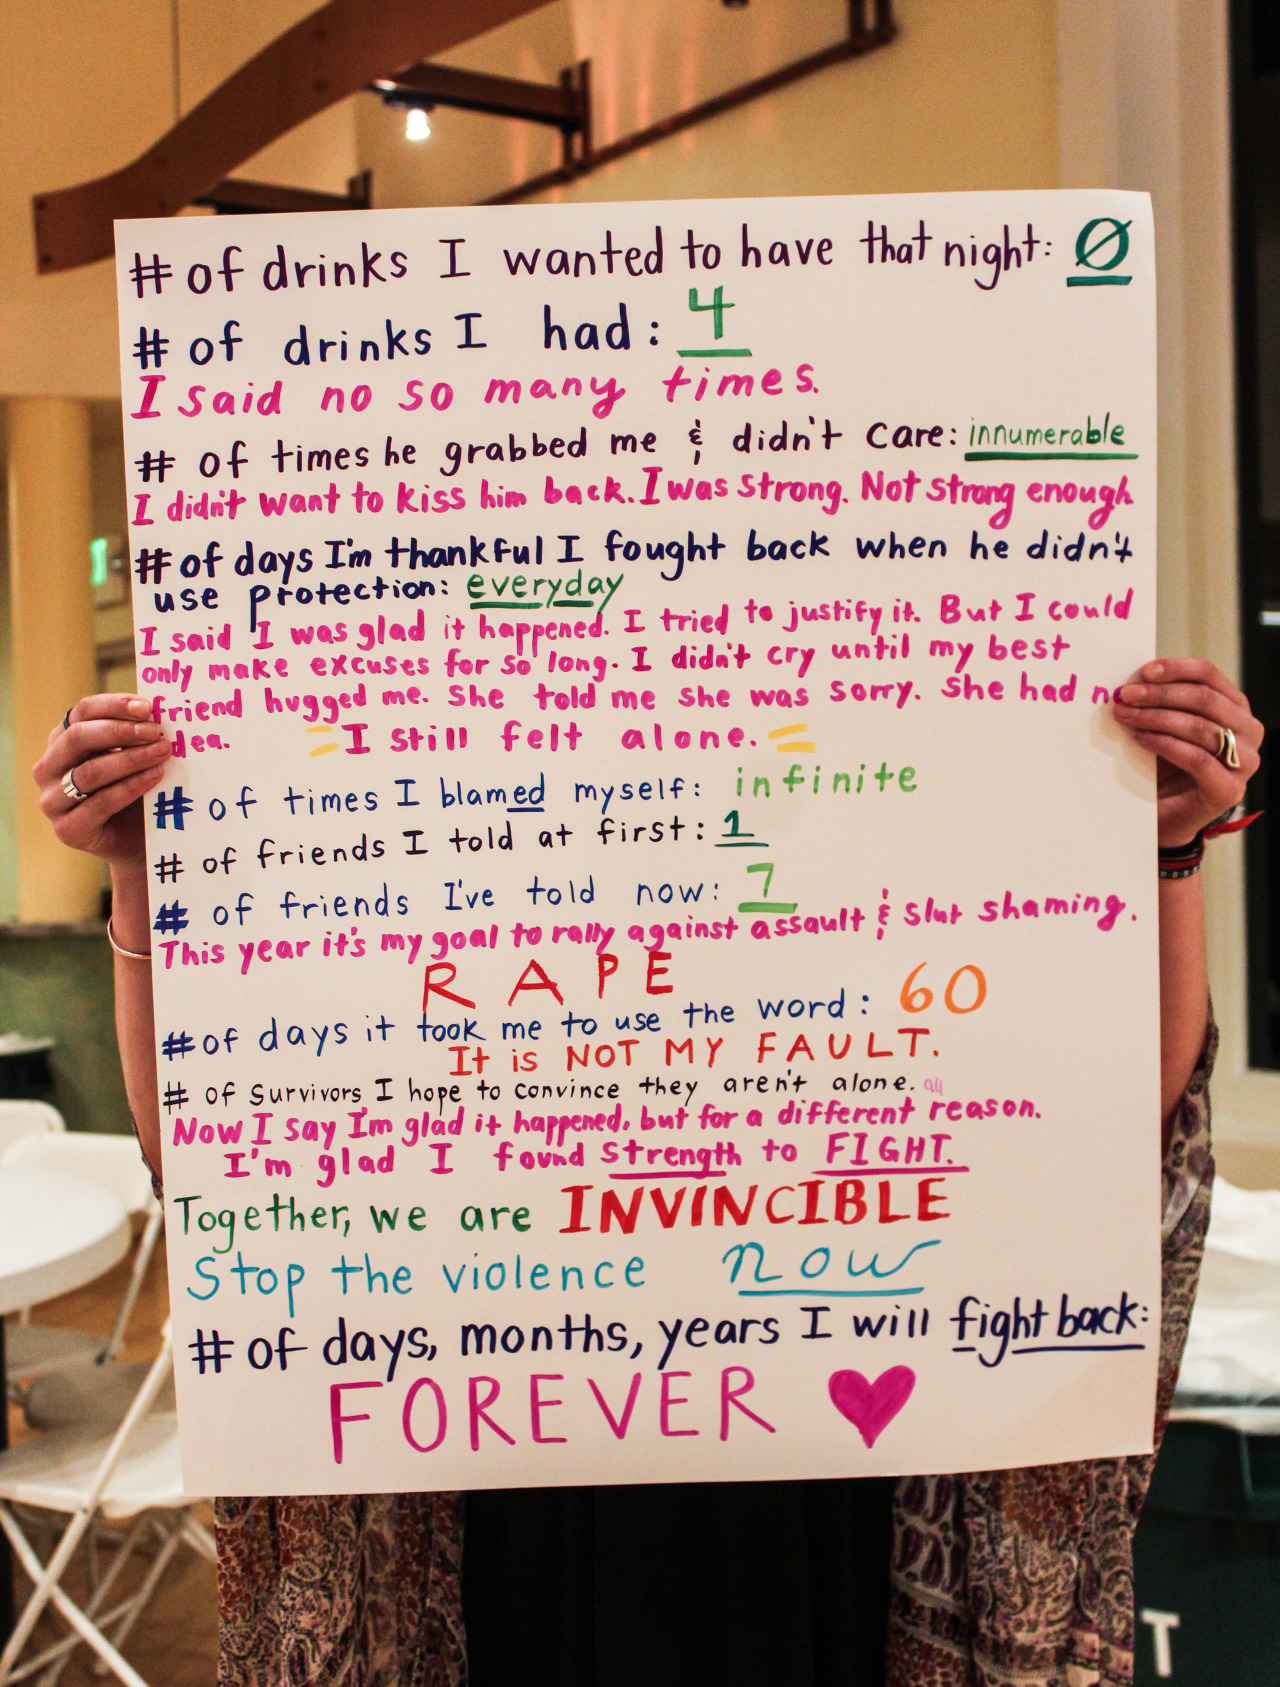 # of drinks I wanted to have that night: Ø
# of drinks I had: 4
I said no so many times.
# of times he grabbed me & didn't care: innumerable
I didn't want to kiss him back. I was strong. Not strong enough
# of days I'm thankful I fought back when he didn't
use protection: everyday
I said I was glad it happened. I tried to justify it. But I could
only make excuses for so long. I didn't cry until my best
friend hugged me. She told me she was sorry. She had no
idea. = I still felt alone. =
# of times I blamed myself: infinite
# of friends I told at first: 1
# of friends I've told now: 7
This year it's my goal to rally against assault & slut shaming.
RAPE
# of days it took me to use the word: 60
It is NOT MY FAULT.
# of survivors I hope to convince they aren't alone. all
Now I say I'm glad it happened, but for a different reason.
I'm glad I found strength to FIGHT.
Together, we are INVINCIBLE
Stop the violence now
# of days, months, years I will fight back:
FOREVER ♥
T